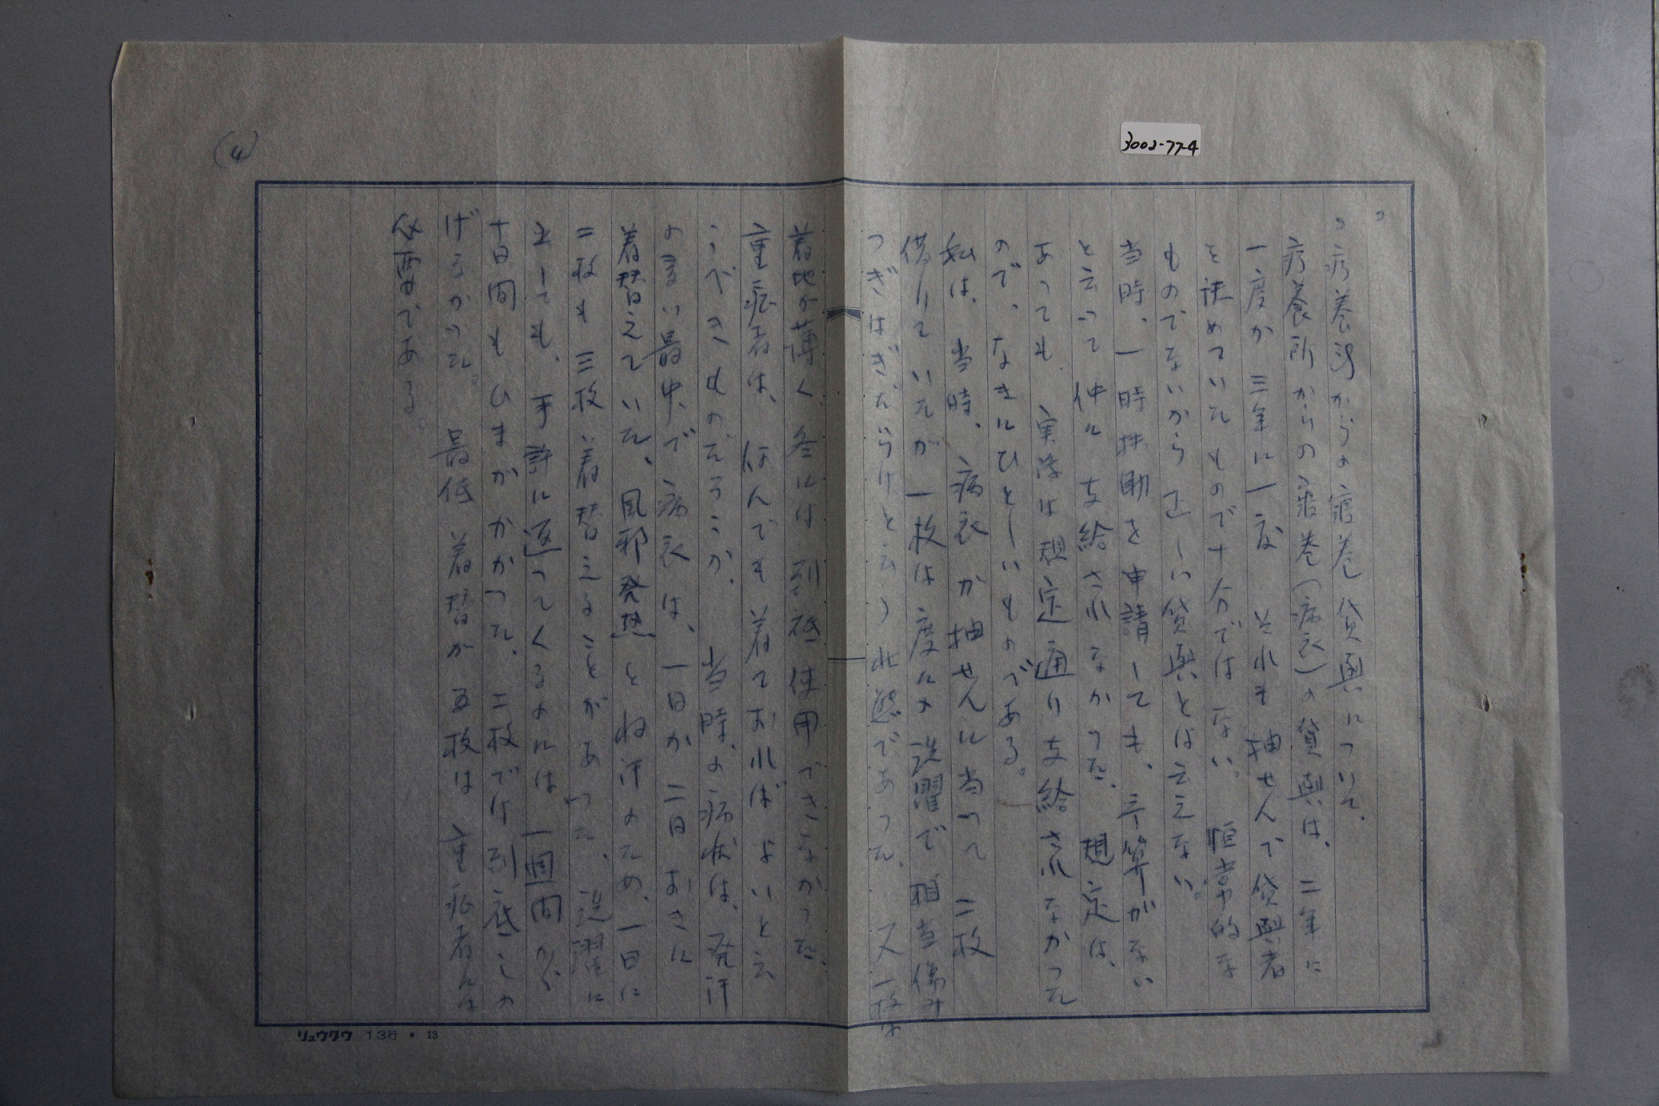 3002-77-4
(4)
療養所からの寝巻貸与について。
療養所からの寝巻(病衣)の貸与は、二年に
一度か三年に一度 それも抽せんで貸与者
を決めていたもので十分ではない。恒常的な
ものでないから正しい貸与とは云えない。
当時、一時扶助を申請しても、予算がない
と云って仲々支給されなかった。規定は、
あっても、実際は規定通り支給されなかった
ので、なさにひとしいものである。
私は、当時、病衣が抽せんに当って二枚
借りていたが一枚は度々の洗濯で相当傷み
つぎはぎだらけと云う状態であった。又一枚は
着地が薄く冬には到底使用できなかった。
重症者は、何んでも着ておればよいと云
うべきものだろうか。当時の病状は、発汗
の多い最中で病衣は、一日か二日おきに
着替えていた、風邪発熱とね汗のため、一日に
二枚も三枚着替えることがあった、洗濯に
出しても、手許に返ってくるのには、一週間から
十日間もひまがかかった、二枚では到底しの
げるかのた。最低 着替が五枚は 重症者には
必要である。
リュウタウ 13行 • 13